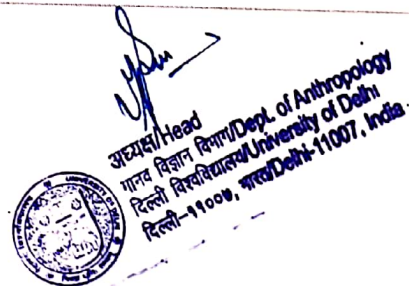 अध्यक्ष/Head
मानव विज्ञान विभाग/Dept. of Anthropology
दिल्ली विश्वविद्यालय/University of Delhi
दिल्ली-११०००७, भारत/Delhi-11007, India
UNIVERSITY OF DELHI